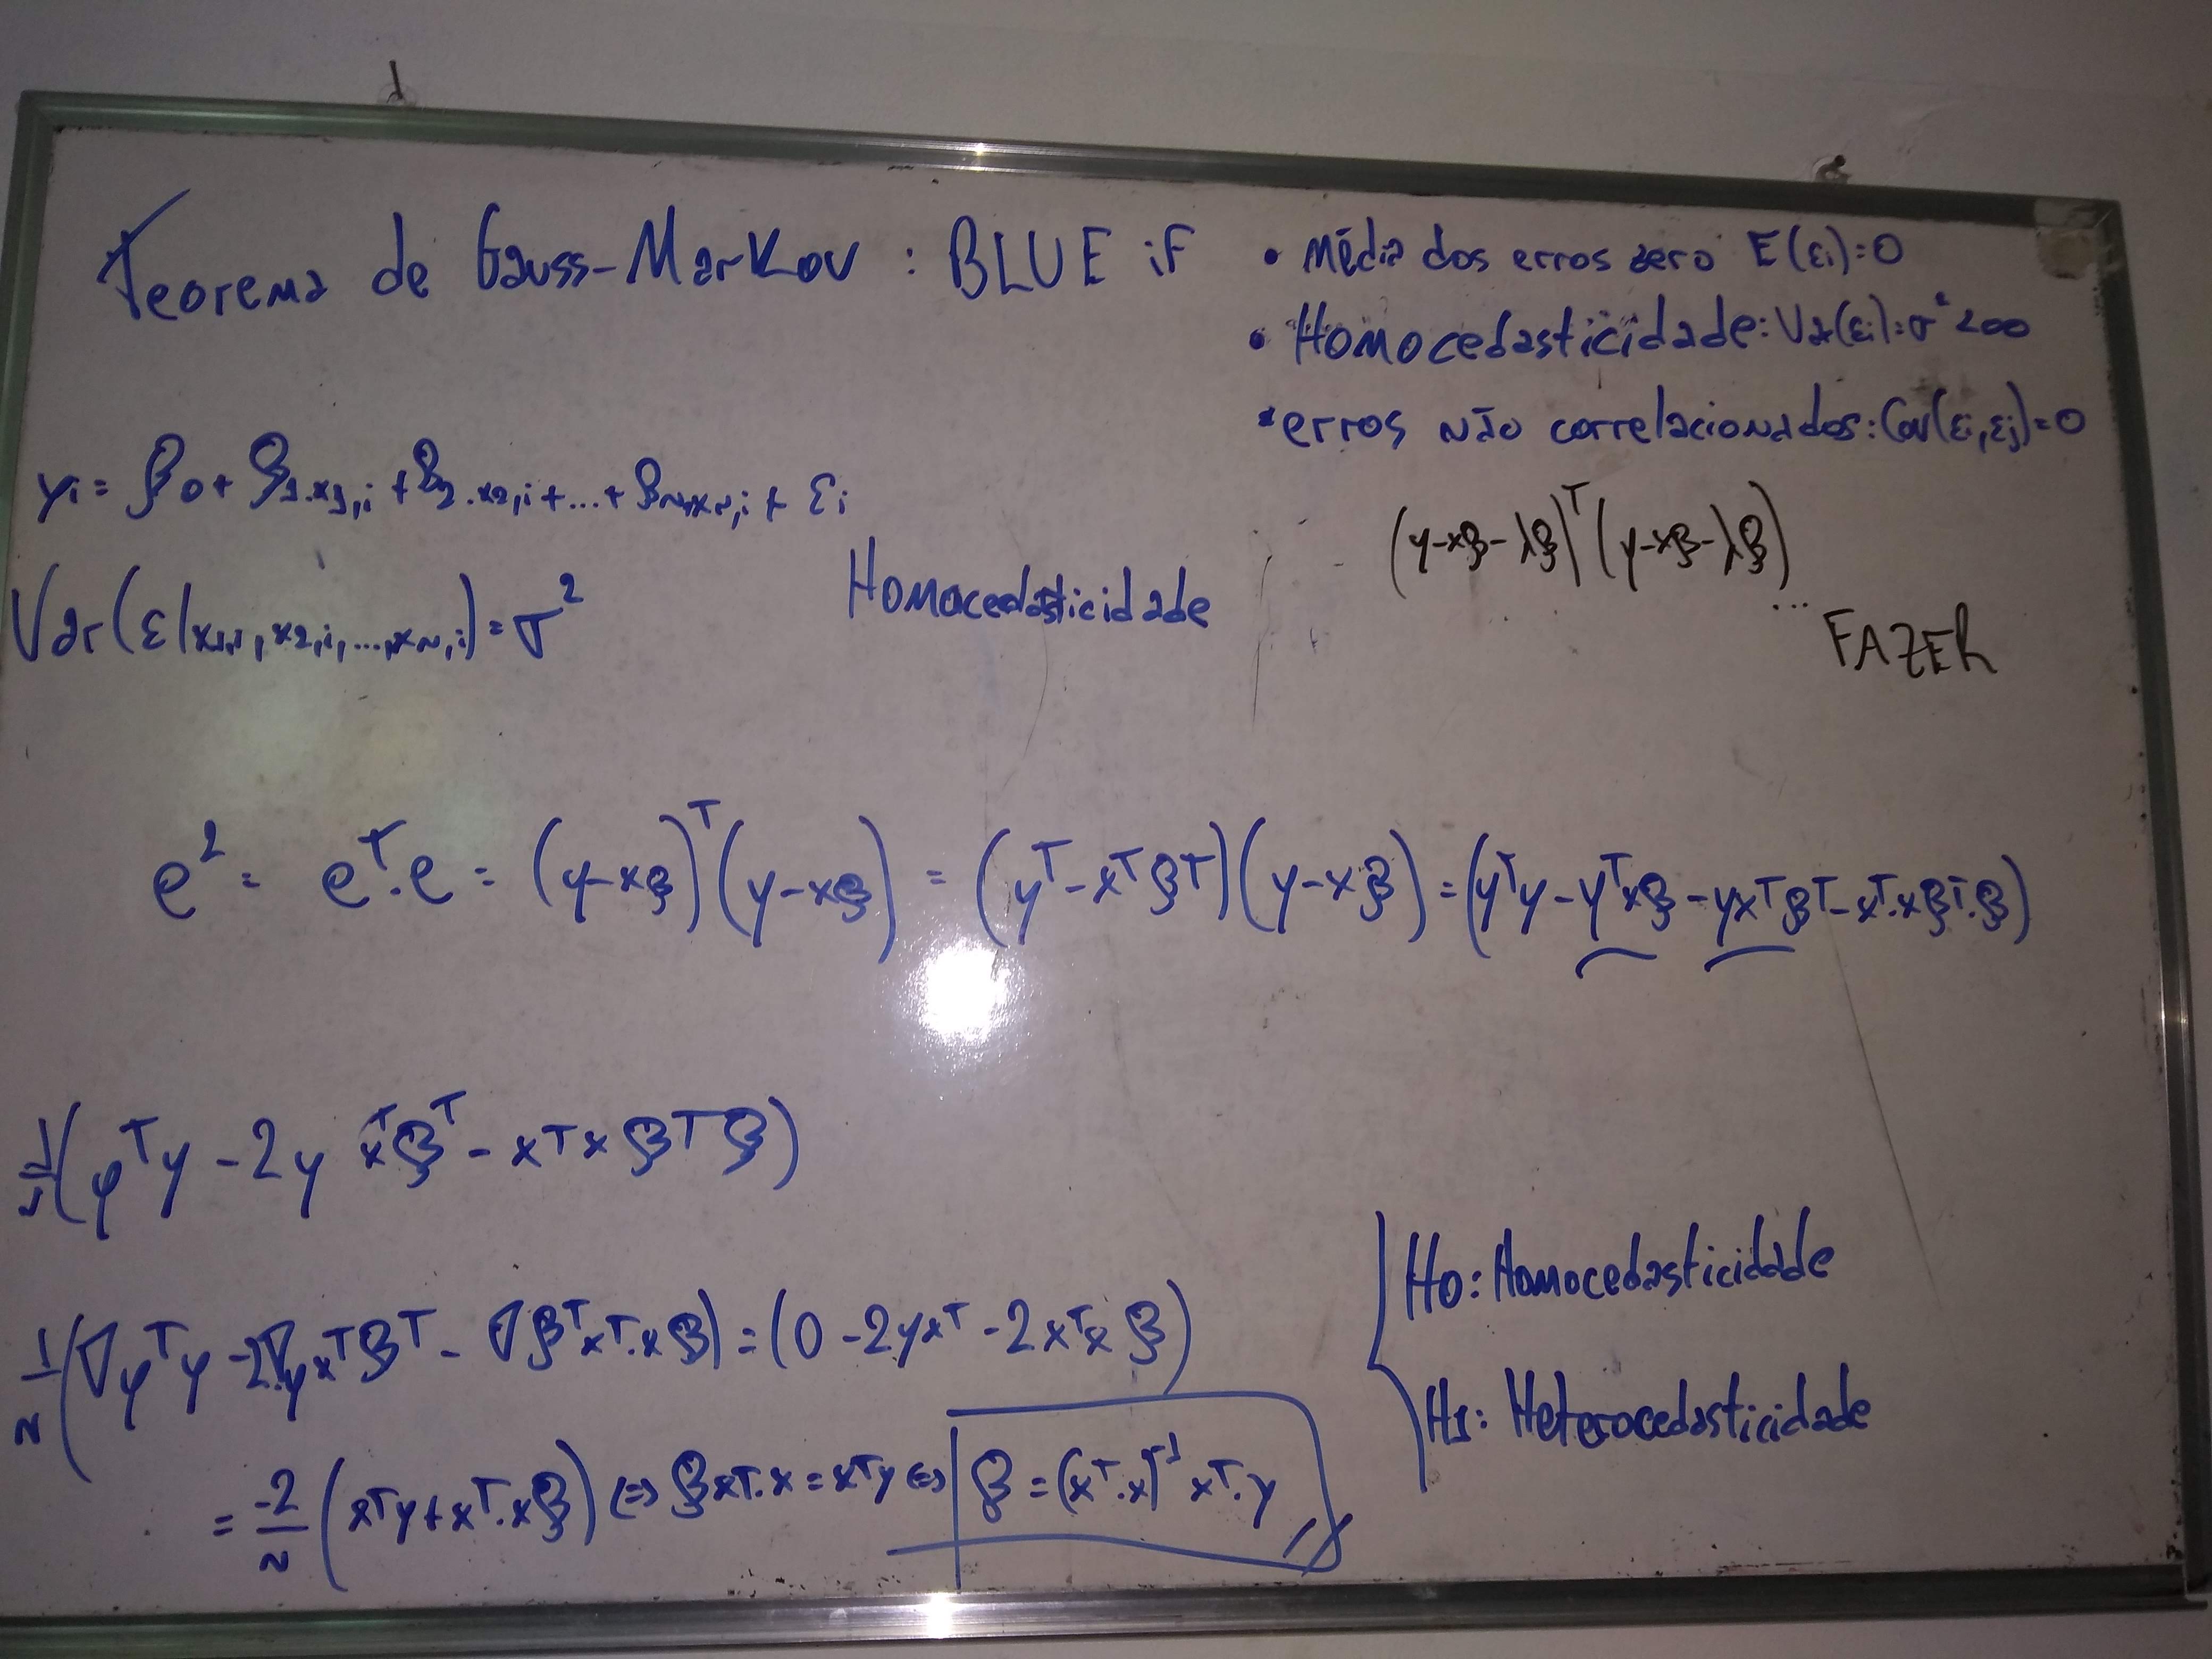 Teorema de Gauss-Markov : BLUE if
• Média dos erros zero E(εi)=0
• Homocedasticidade: Var(εi)=σ²<∞
• erros não correlacionados: Cov(εi,εj)=0
yi = β0 + β1.x1,i + β2.x2,i + ... + βn.xn,i + εi
(y-xβ-λβ)ᵀ(y-xβ-λβ)
...
FAZER
Var(ε|x1,i, x2,i, ..., xn,i) = σ²
Homocedasticidade
e² = eᵀ.e = (y-xβ)ᵀ(y-xβ) = (yᵀ-xᵀβᵀ)(y-xβ) = (yᵀy - yᵀxβ - yxᵀβᵀ - xᵀ.xβᵀ.β)
1/N (yᵀy - 2y xᵀβᵀ - xᵀxβᵀβ)
1/N (∇yᵀy - 2∇yxᵀβᵀ - ∇βᵀxᵀ.xβ) = (0 - 2yxᵀ - 2xᵀxβ)
= -2/N (xᵀy + xᵀ.xβ) ⇔ βxᵀ.x = xᵀy ⇔ β = (xᵀ.x)⁻¹ xᵀ.y //
H0: Homocedasticidade
H1: Heterocedasticidade